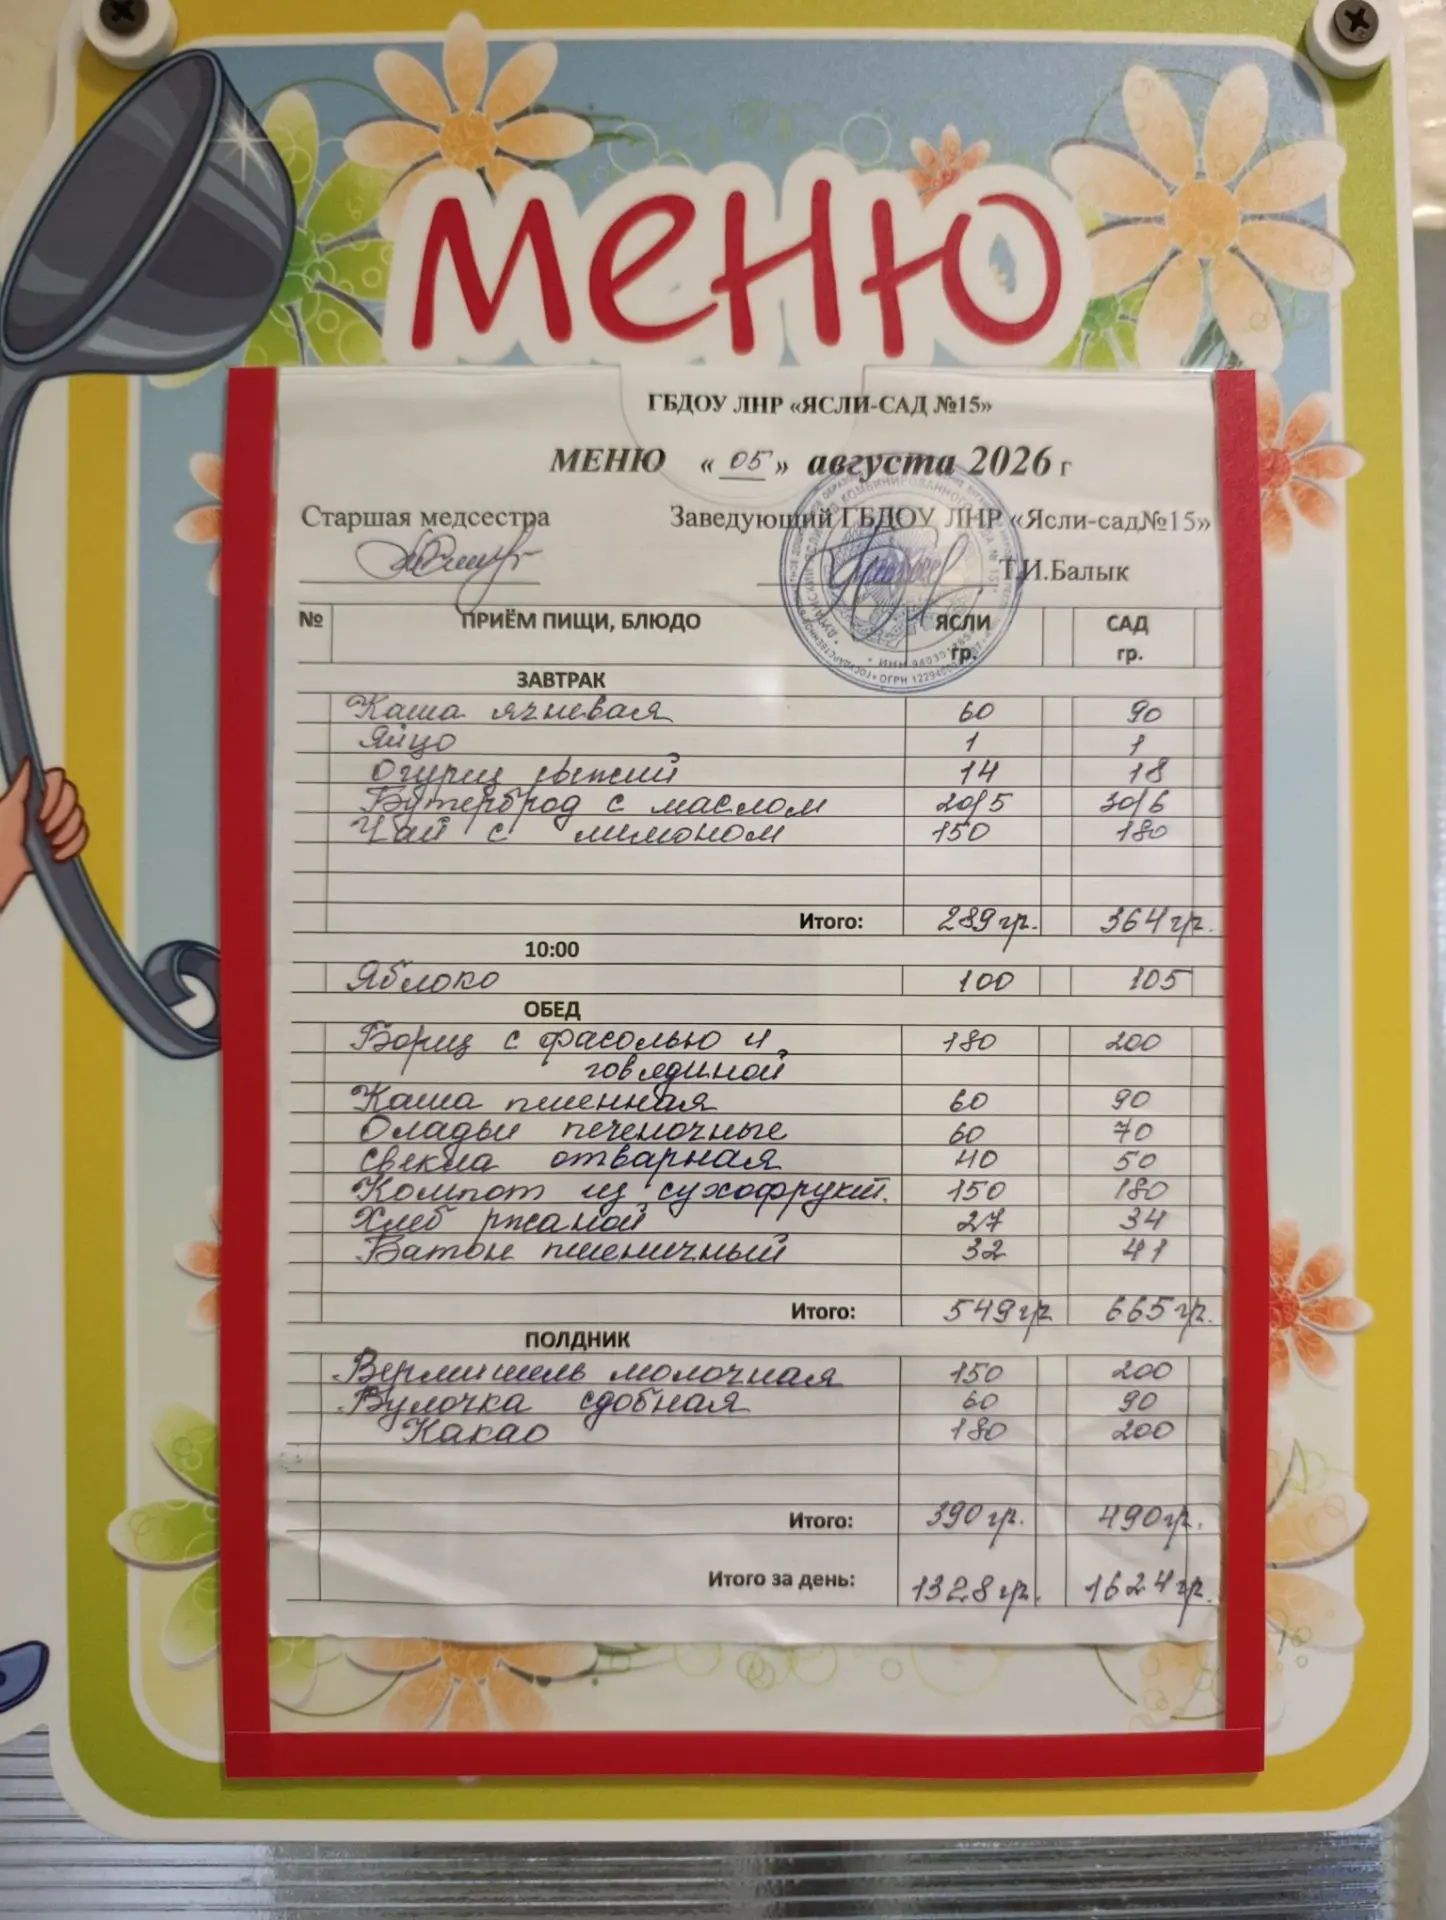 меню
ГБДОУ ЛНР «ЯСЛИ-САД №15»
МЕНЮ « 05 » августа 2026 г
Старшая медсестра Заведующий ГБДОУ ЛНР «Ясли-сад№15»
Т.И.Балык
№ ПРИЁМ ПИЩИ, БЛЮДО ЯСЛИ гр. САД гр.
ЗАВТРАК
Каша ячневая 60 90
Яйцо 1 1
Огурец свежий 14 18
Бутерброд с маслом 20/5 30/6
Чай с лимоном 150 180
Итого: 289гр. 364гр.
10:00
Яблоко 100 105
ОБЕД
Борщ с фасолью и 180 200
говядиной
Каша пшенная 60 90
Оладьи печеночные 60 70
свекла отварная 40 50
Компот из сухофрукт. 150 180
Хлеб ржаной 27 34
Батон пшеничный 32 41
Итого: 549гр 665гр.
ПОЛДНИК
Вермишель молочная 150 200
Булочка сдобная 60 90
Какао 180 200
Итого: 390гр. 490гр.
Итого за день: 1328гр. 1624гр.